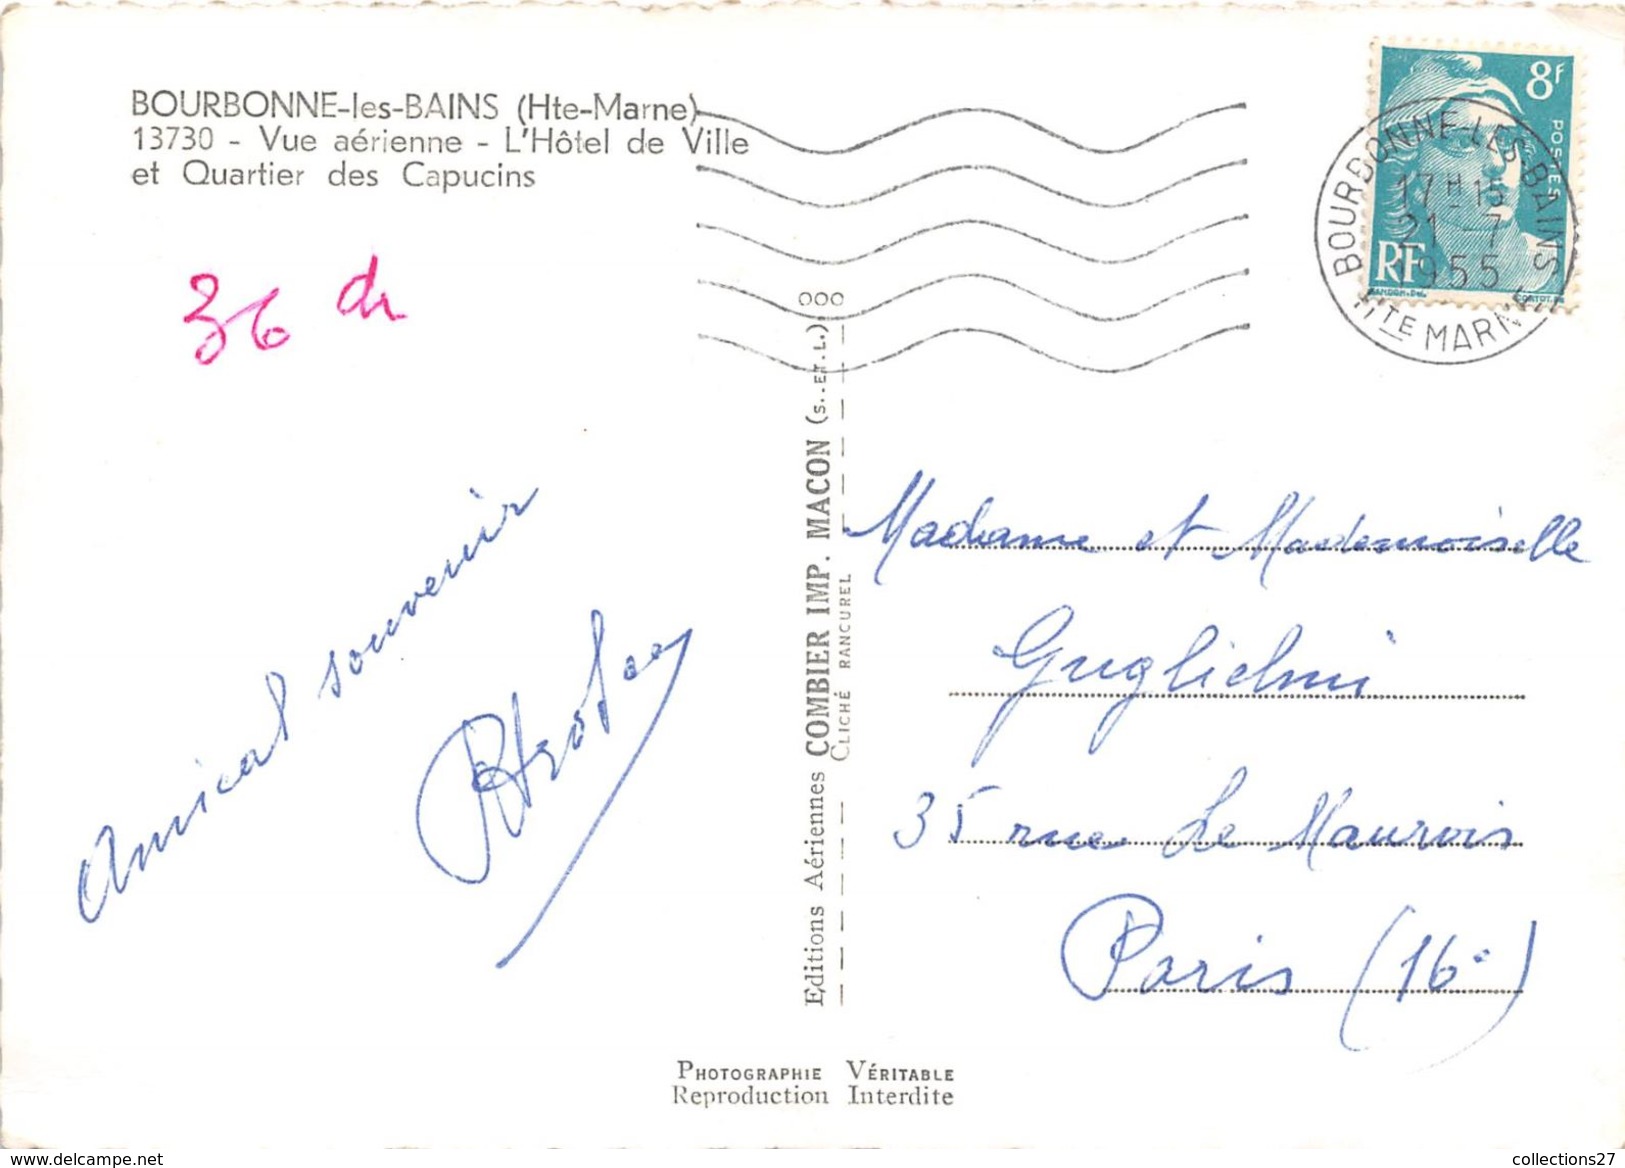 BOURBONNE-les-BAINS (Hte-Marne)
13730 - Vue aérienne - L'Hôtel de Ville
et Quartier des Capucins
36 dr
8F
POSTES
RF
GANDON-Del.
CORTOT. Sc
BOURBONNE-LES-BAINS
17H15
21 7
1955
HTE MARNE
Amical souvenir
Editions Aériennes COMBIER IMP. MACON (S.-ET-L.) 000
CLICHÉ RANCUREL
Madame et Mademoiselle
Guglielmi
35 rue Le Maurois
Paris (16e)
PHOTOGRAPHIE VÉRITABLE
Reproduction Interdite
collections27
www.delcampe.net